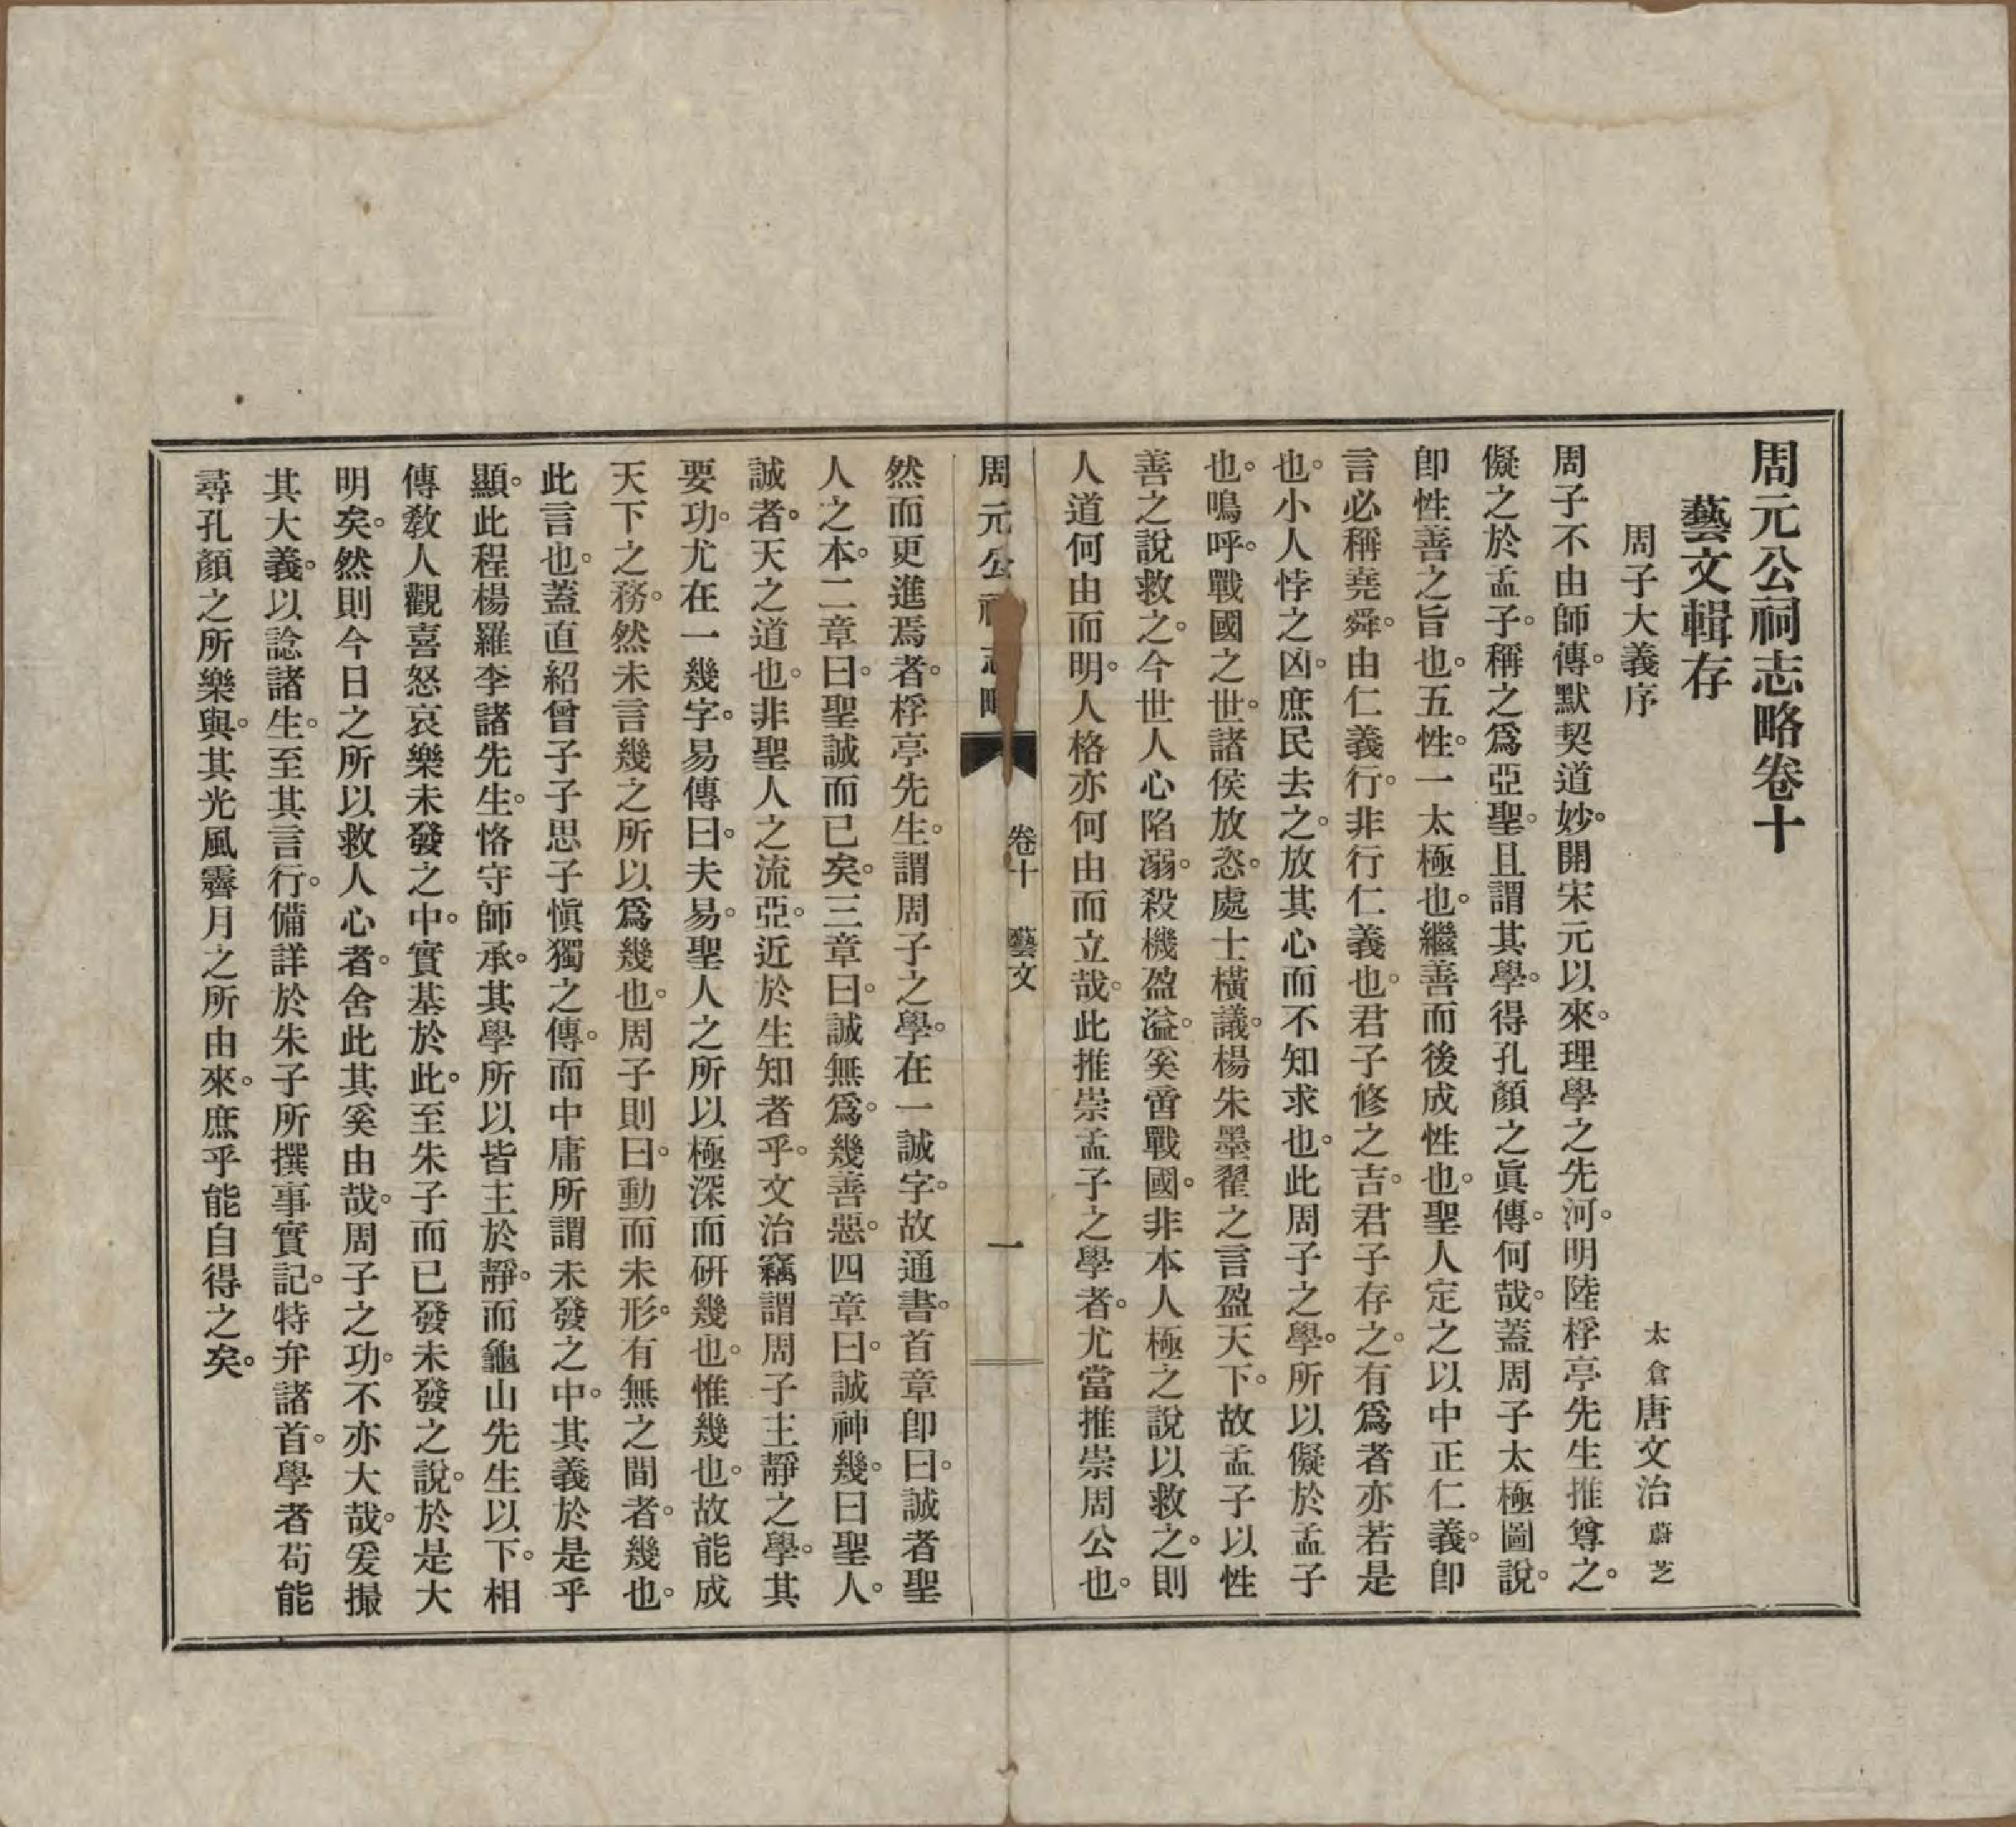 周元公祠志略卷十
藝文輯存
周子大義序
太倉唐文治蔚芝
周子不由師傳。默契道妙。開宋元以來。理學之先河。明陸桴亭先生推尊之。
儗之於孟子。稱之爲亞聖。且謂其學。得孔顏之眞傳。何哉。蓋周子太極圖說。
卽性善之旨也。五性。一太極也。繼善而後成性也。聖人定之以中正仁義。卽
言必稱堯舜。由仁義行。非行仁義也。君子修之吉。君子存之。有爲者亦若是
也。小人悖之凶。庶民去之。放其心而不知求也。此周子之學。所以儗於孟子
也。鳴呼。戰國之世。諸侯放恣。處士橫議。楊朱墨翟之言盈天下。故孟子以性
善之說救之。今世人心陷溺。殺機盈溢。奚啻戰國。非本人極之說以救之。則
人道何由而明。人格亦何由而立哉。此推崇孟子之學者。尤當推崇周公也。
周元公祠志略
卷十
藝文
一
然而更進焉者。桴亭先生。謂周子之學。在一誠字。故通書。首章卽曰。誠者聖
人之本。二章曰。聖誠而已矣。三章曰。誠無爲。幾善惡。四章曰。誠神幾。曰聖人。
誠者。天之道也。非聖人之流亞。近於生知者乎。文治竊謂周子主靜之學。其
要功。尤在一幾字。易傳曰。夫易。聖人之所以極深而研幾也。惟幾也。故能成
天下之務。然未言幾之所以爲幾也。周子則曰。動而未形。有無之間者。幾也。
此言也。蓋直紹曾子子思子愼獨之傳。而中庸所謂未發之中。其義於是乎
顯。此程楊羅李諸先生。恪守師承。其學所以皆主於靜。而龜山先生以下。相
傳敎人觀喜怒哀樂未發之中。實基於此。至朱子而已發未發之說。於是大
明矣。然則今日之所以救人心者。舍此其奚由哉。周子之功。不亦大哉。爰撮
其大義。以諗諸生。至其言行。備詳於朱子所撰事實記。特弁諸首。學者苟能
尋孔顏之所樂。與其光風霽月之所由來。庶乎能自得之矣。